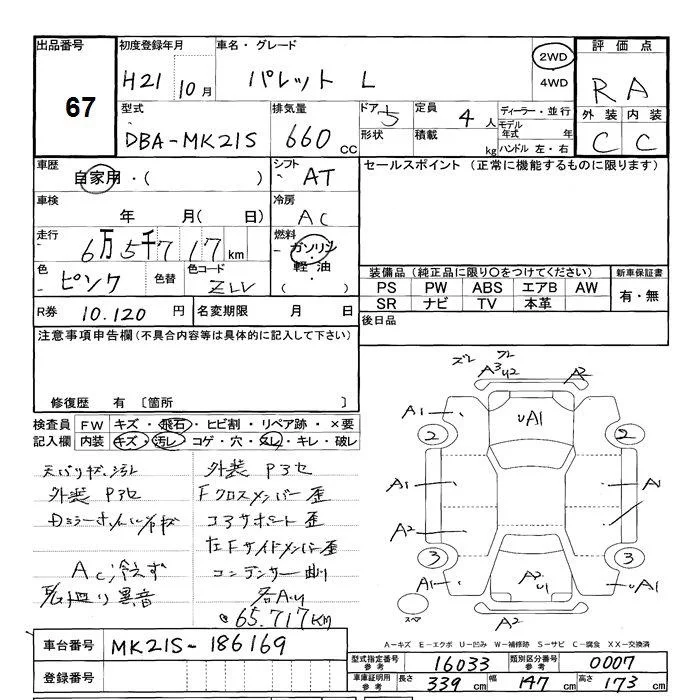 出品番号 初度登録年月 車名・グレード 評価点
67 H21 10月 パレット L 2WD 4WD R A
外装 内装
C C
型式 排気量 ドア 定員 ディーラー・並行
DBA-MK21S 660 CC 5 4人 モデル年式 年
形状 積載 kg ハンドル 左・右
車歴 シフト セールスポイント (正常に機能するものに限ります)
自家用・( ) AT
車検 冷房
年 月( 日) AC
走行 燃料
6万5千717km ガソリン
軽油
( )
色 色替 色コード
ピンク ZLV
装備品 (純正品に限り○をつけてください) 新車保証書
PS PW ABS エアB AW 有・無
SR ナビ TV 本革
R券 10.120円 名変期限 月 日 後日品
注意事項申告欄(不具合内容等は具体的に記入して下さい)
修復歴 有 〔箇所 〕
検査員記入欄 FW キズ・飛石・ヒビ割・リペア跡・×要
内装 キズ・汚レ・コゲ・穴・スレ・キレ・破レ
外装 P3セ
外装 P3セ
Fクロスメンバー歪
コアサポート歪
左Fサイドメンバー歪
コンデンサー曲り
Ac冷えず
異音
65.717KM
ズレ フレ
A³U2 A²
A1 UA1
2 2
A1 A1
A²
3 3
A1 A² U1 UA1
スペア A²
A-キズ E-エクボ U-凹み W-補修跡 S-サビ C-腐食 XX-交換済
車台番号 MK21S-186169
登録番号
型式指定番号参考 16033 類別区分番号参考 0007
車庫証明用参考 長さ 339cm 幅 147cm 高さ 173cm